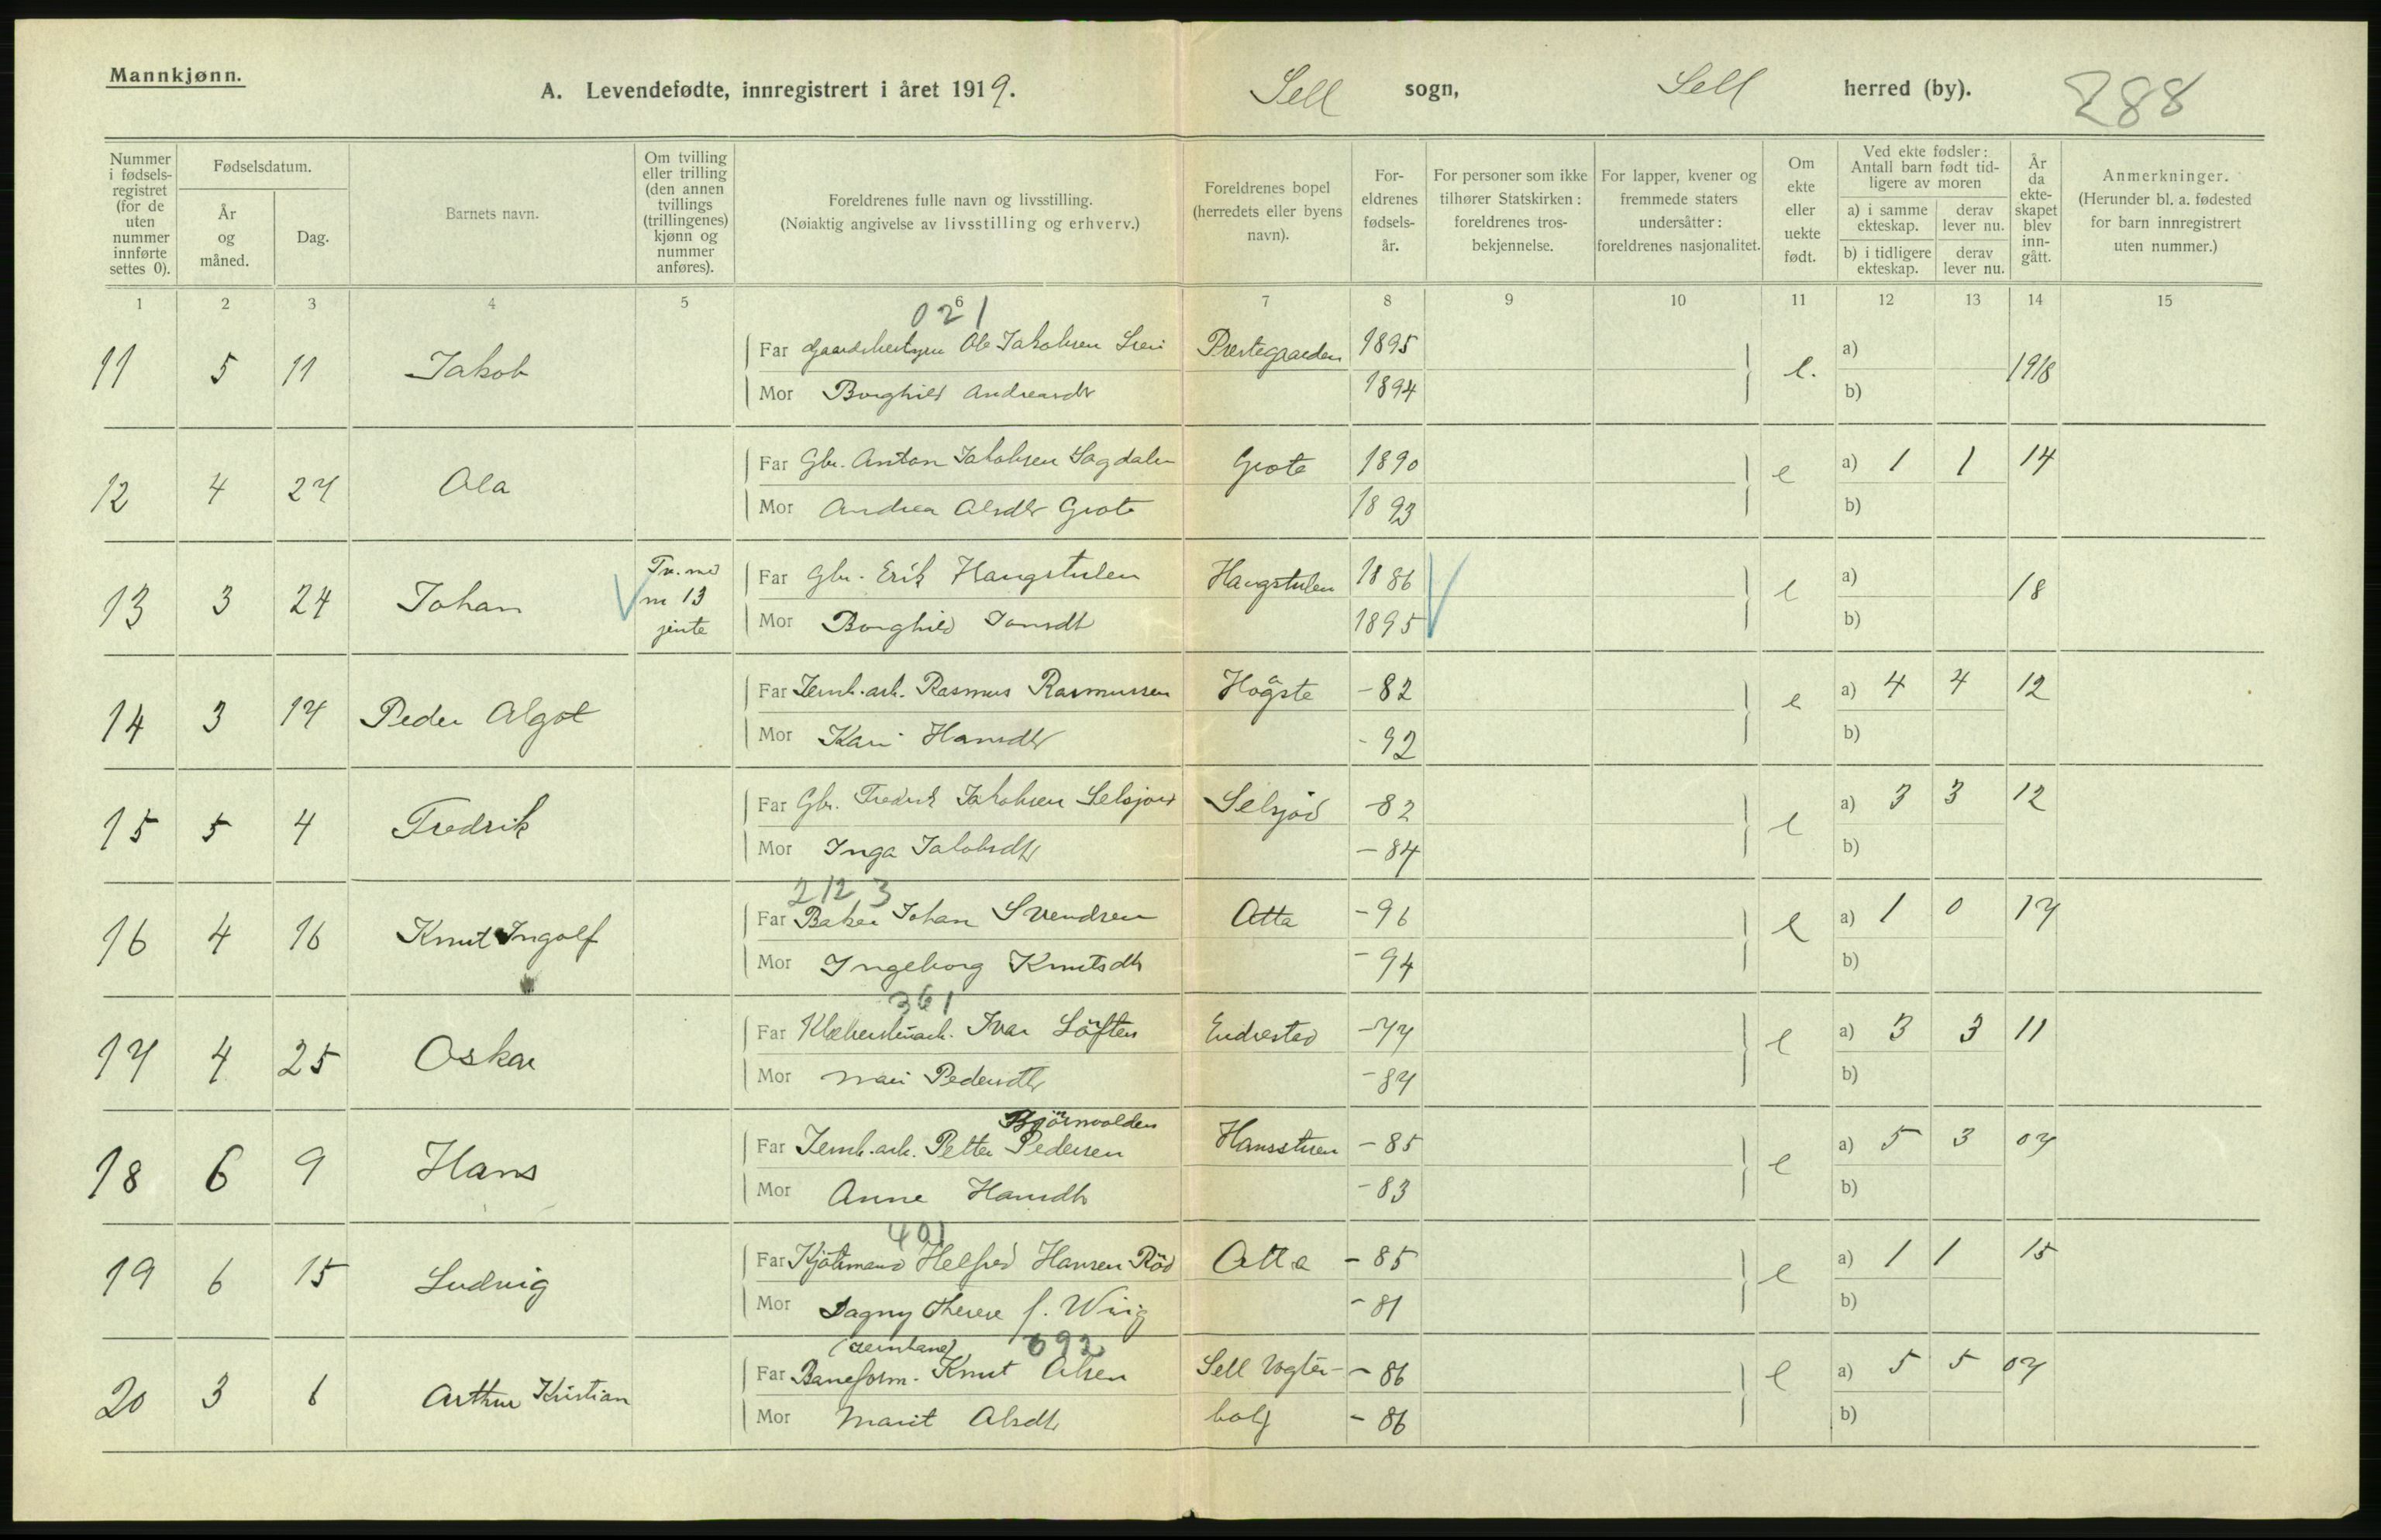 Mannkjønn.
A. Levendefødte, innregistrert i året 1919. Sell sogn, Sell herred (by). 288
Nummer i fødselsregistret (for de uten nummer innførte settes 0).
Fødselsdatum.
År og måned.
Dag.
Barnets navn.
Om tvilling eller trilling (den annen tvillings (trillingenes) kjønn og nummer anføres).
Foreldrenes fulle navn og livsstilling.
(Nøiaktig angivelse av livsstilling og erhverv.)
Foreldrenes bopel (herredets eller byens navn).
Foreldrenes fødselsår.
For personer som ikke tilhører Statskirken: foreldrenes trosbekjennelse.
For lapper, kvener og fremmede staters undersåtter: foreldrenes nasjonalitet.
Om ekte eller uekte født.
Ved ekte fødsler: Antall barn født tidligere av moren
a) i samme ekteskap. derav lever nu.
b) i tidligere ekteskap. derav lever nu.
År da ekteskapet blev inngått.
Anmerkninger.
(Herunder bl. a. fødested for barn innregistrert uten nummer.)
1 2 3 4 5 6 7 8 9 10 11 12 13 14 15
021
11 5 11 Jakob Far Gaardsbestyrer Ole Jakobsen Præstegaarden 1895 e. a) 1918
Mor Borghild Andreasdt 1894 b)
12 4 27 Ola Far Gbr. Anton Jakobsen Sagdalen Grote 1890 e a) 1 1 14
Mor Andrea Olsdtr Grote 1893 b)
13 3 24 Johan Tv. med nr 13 jente Far Gbr. Erik Haugstulen Haugstulen 1886 e a) 18
Mor Borghild Jonsdt 1895 b)
14 3 17 Peder Algot Far Jernb.arb. Rasmus Rasmussen Hågåste -82 e a) 4 4 12
Mor Kari Hansdtr -92 b)
15 5 4 Fredrik Far Gbr. Fredrik Jakobsen Selsjord Selsjöd -82 e a) 3 3 12
Mor Inga Jakobsdtr -84 b)
2123
16 4 16 Knut Ingolf Far Baker Johan Svendsen Otta -96 e a) 1 0 17
Mor Ingeborg Knutsdtr -94 b)
361
17 4 25 Oskar Far Klæberstensarb. Ivar Löften Endrestad -77 e a) 3 3 11
Mor Mari Pedersdtr -87 b)
Bjørnvolden
18 6 9 Hans Far Jernb.arb. Petter Pedersen Hansstuen -85 e a) 5 3 07
Mor Anne Hansdtr -83 b)
401
19 6 15 Ludvig Far Kjøbmand Helfred Hansen Röd Otta -85 e a) 1 1 15
Mor Dagny Therese f. Wiig -81 b)
(Jernbane) 092
20 3 6 Arthur Kristian Far Baneform. Knut Olsen Sell Vogter- -86 e a) 5 5 07
Mor Marit Olsdtr bolg -86 b)